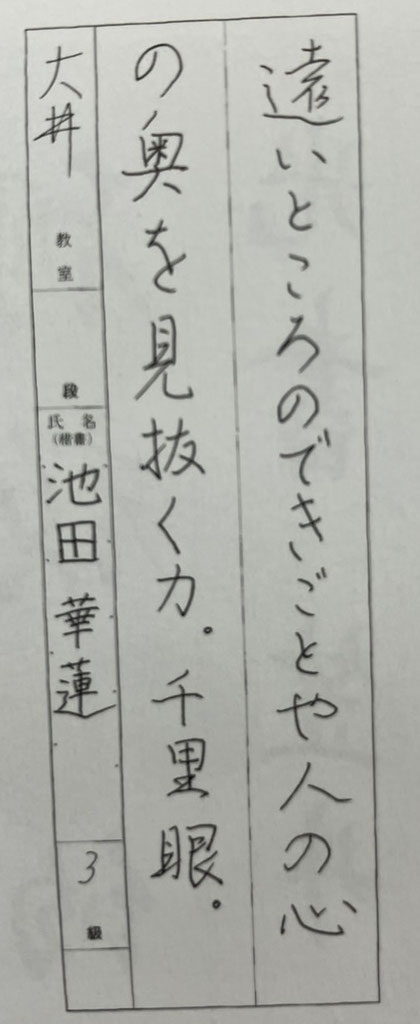 遠いところのできごとや人の心
の奥を見抜く力。千里眼。
大井 教室
段
氏名
(楷書)
池田華蓮
3級